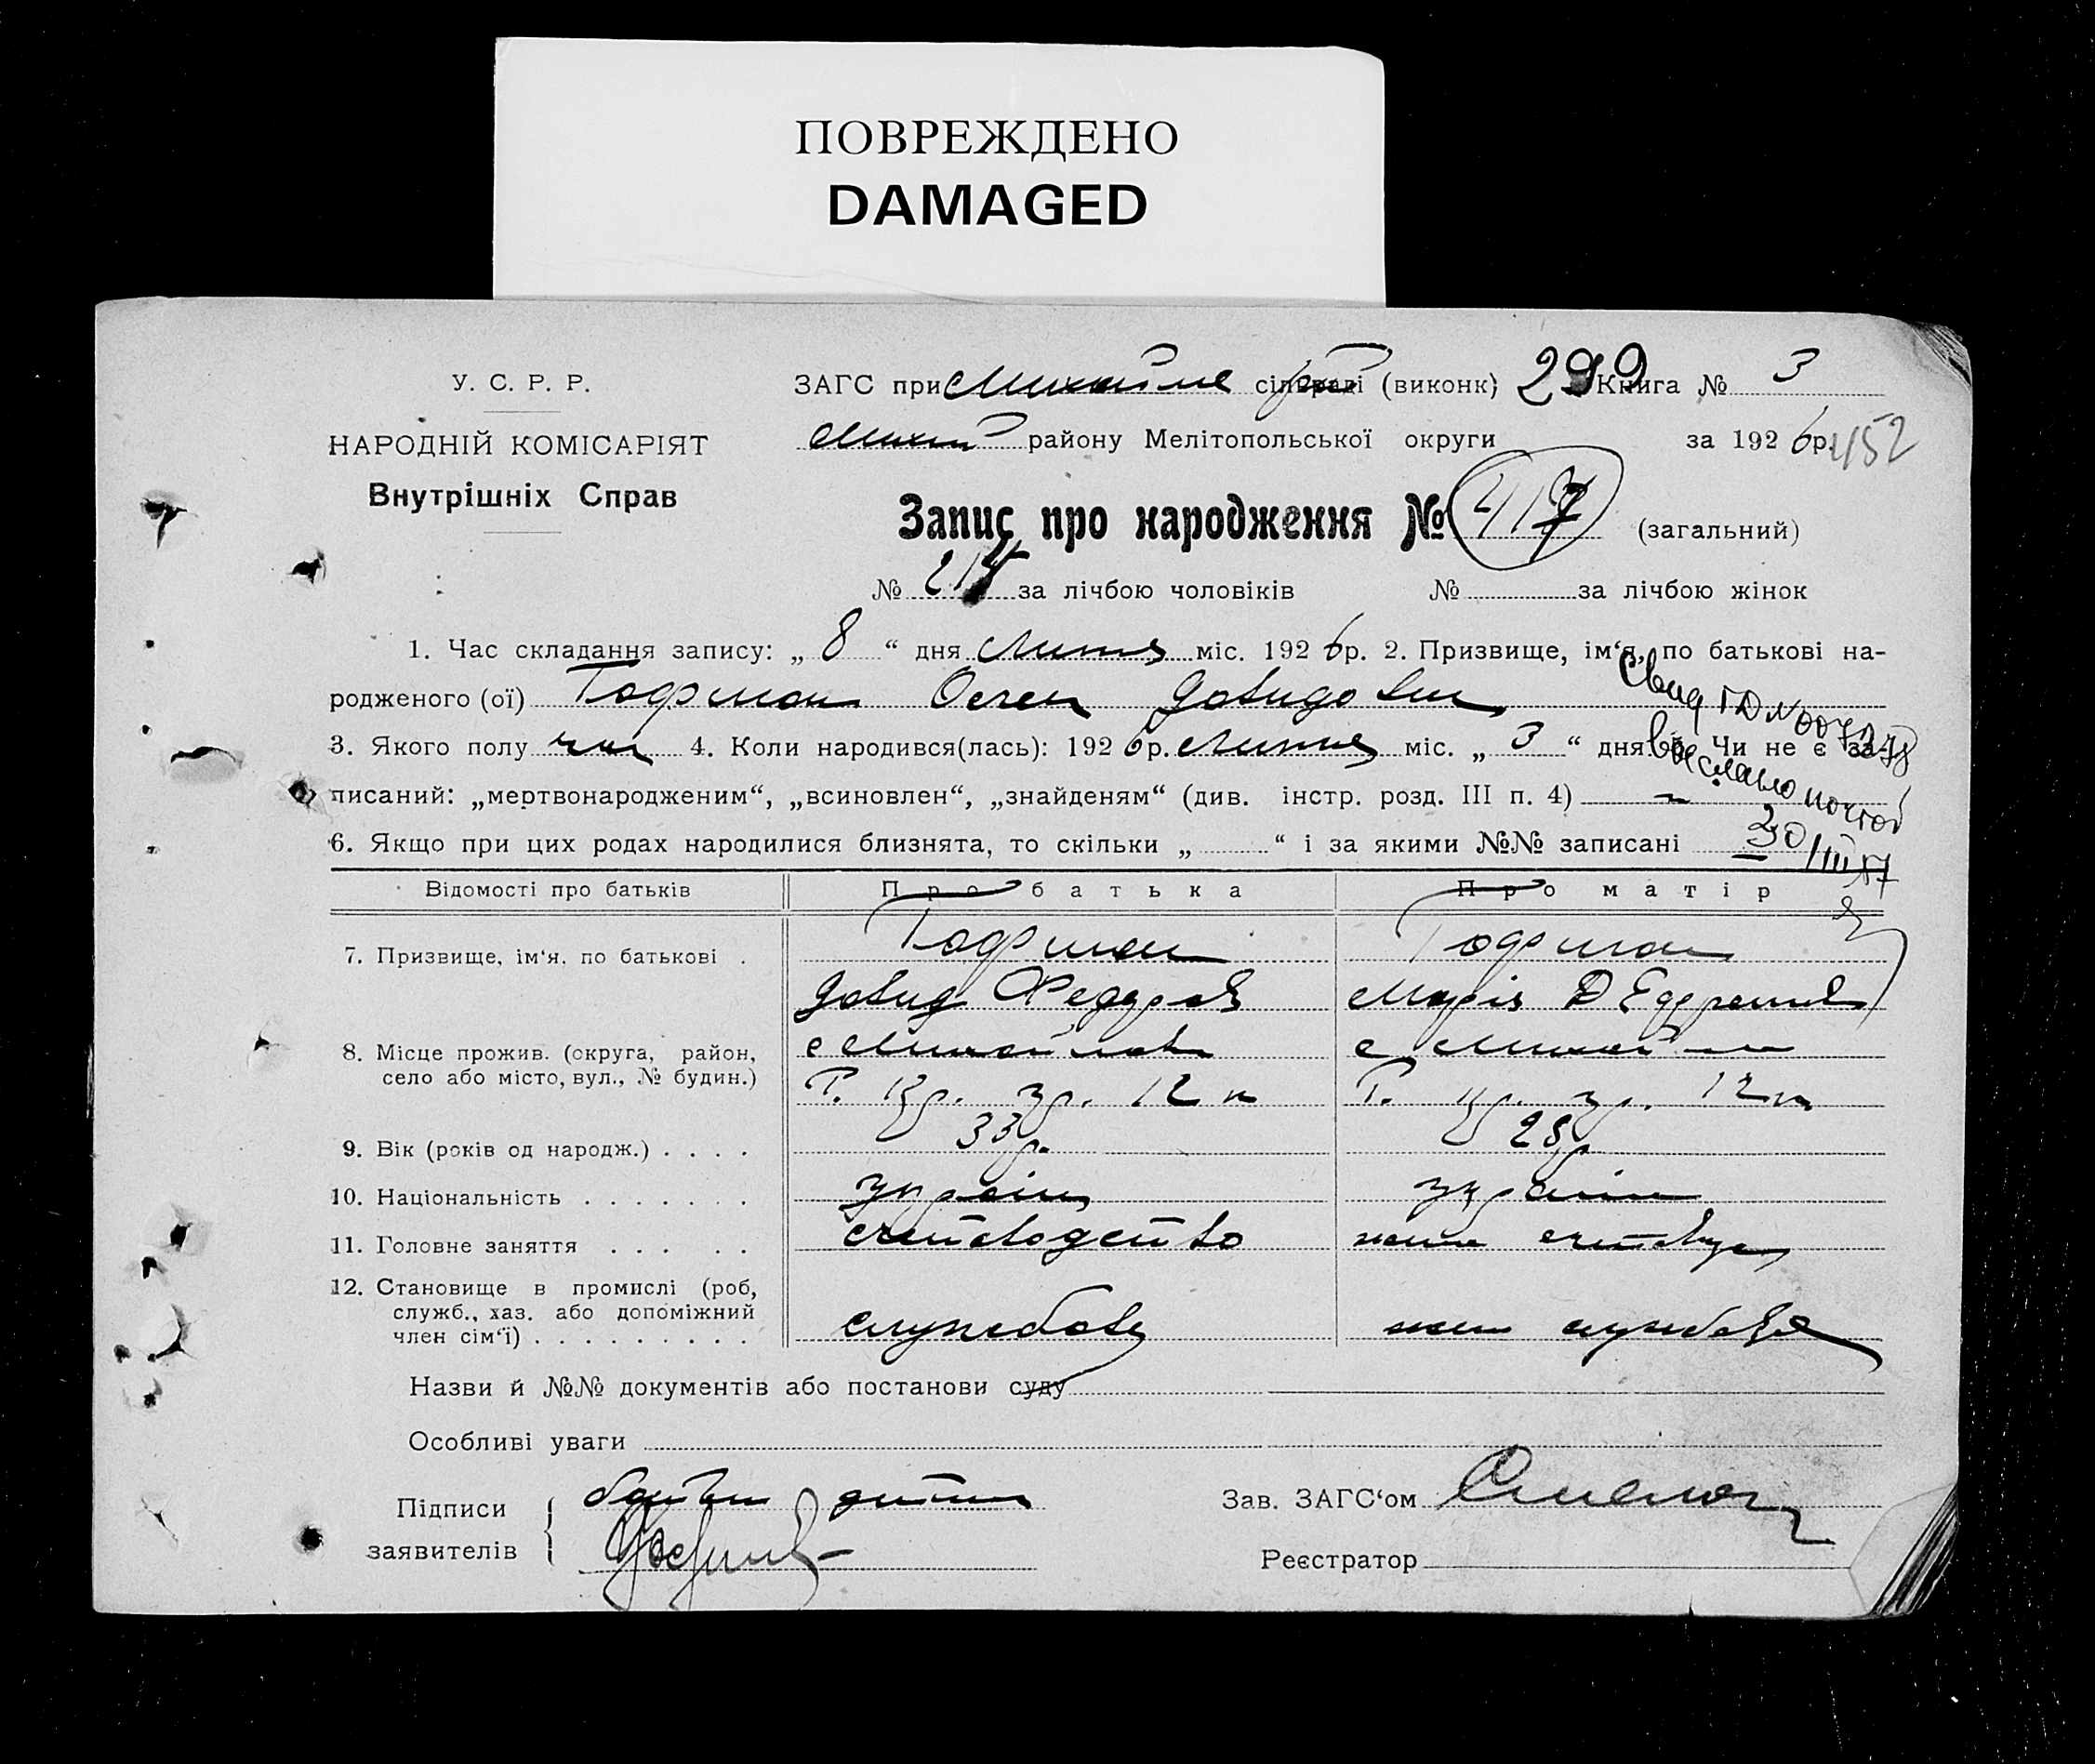 ПОВРЕЖДЕНО
DAMAGED
У. С. Р. Р.
НАРОДНІЙ КОМІСАРІЯТ
Внутрішніх Справ
ЗАГС при Михайлів сільраді (виконк) 299 Книга № 3
Михай району Мелітопольської округи за 1926 р. 452
Запис про народження № 417 (загальний)
№ 214 за лічбою чоловіків № за лічбою жінок
1. Час складання запису: „ 8 “ дня Липня міс. 1926 р. 2. Призвище, ім‘я, по батькові на-
родженого (ої) Гофман Давидович
Свид ГД №
3. Якого полу чол 4. Коли народився(лась): 1926 р. Липня міс. „ 3 “ дня 5. Чи не є за-
писаний: „мертвонародженим“, „всиновлен“, „знайденям“ (див. інстр. розд. III п. 4) —
выслано почтой
6. Якщо при цих родах народилися близнята, то скільки „ “ і за якими №№ записані
30/III 57
Відомості про батьків Про батька Про матір
7. Призвище, ім‘я, по батькові . Гофман Гофман
Давид Марія
8. Місце прожив. (округа, район, с Михайлівка с Михайлів
село або місто, вул., № будин.) 12 12
9. Вік (років од народж.) . . . . 33 р. 28 р
10. Національність . . . . . . . україн україн
11. Головне заняття . . . . . счетоводство
12. Становище в промислі (роб,
служб., хаз. або допоміжний
член сім‘ї) . . . . . . . . . службовец жін службовця
Назви й №№ документів або постанови суду
Особливі уваги
Підписи батьки дитини Зав. ЗАГС‘ом
заявителів Реєстратор